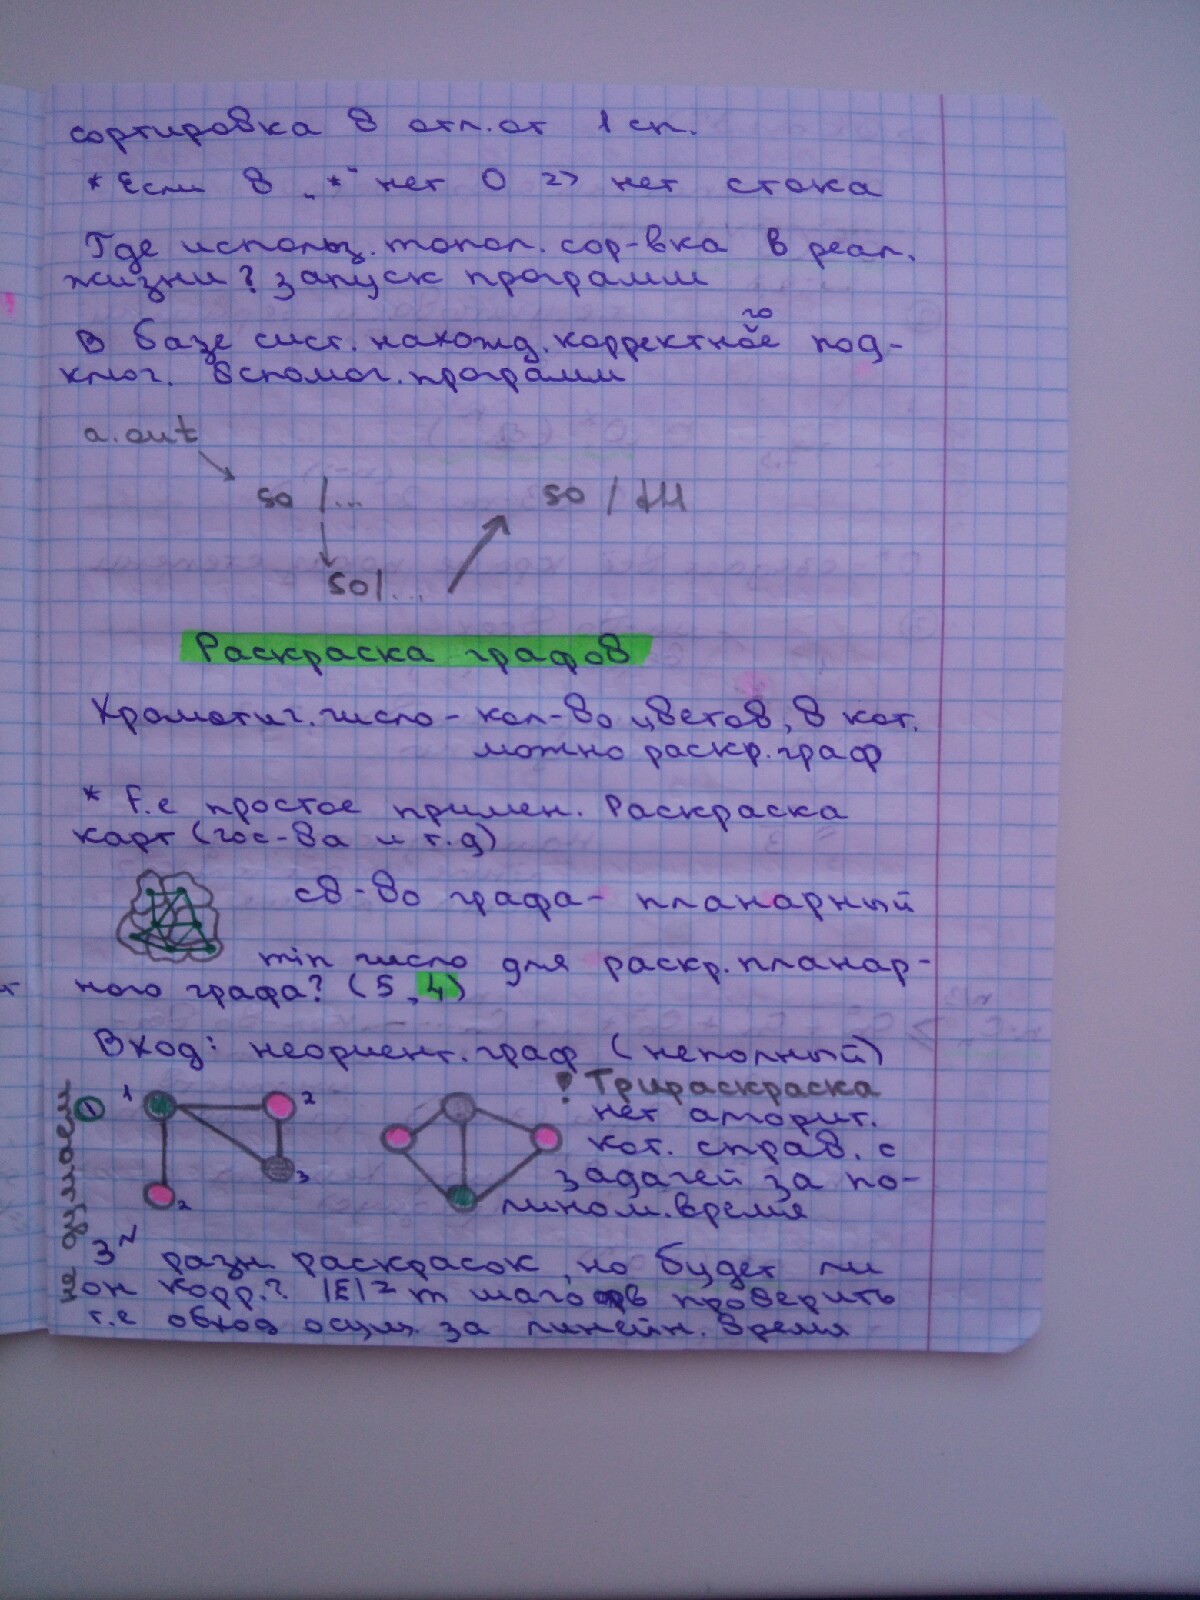 сортировка в отл. от 1 сп.
* Если в "*" нет 0 => нет стока
Где использ. топол. сор-вка в реал.
жизни? запуск программ
го
В базе сист. нахожд. корректное под-
ключ. вспомог. программ
a.out
so /...
so / ///
so/...
Раскраска графов
Хроматич. число - кол-во цветов, в кот.
можно раскр. граф
* F.e простое примен. Раскраска
карт (гос-ва и т.д)
св-во графа - планарный
min число для раскр. планар-
ного графа? (5, 4)
Вход: неориент. граф (неполный)
! Трираскраска
1
1
2
нет алгорит.
кот. справ. с
3
задачей за по-
2
лином. время
не думаем
3^N разн. раскрасок, но будет ли
он корр.? |E| = m шагов проверить
т.е обход осущ. за линейн. время